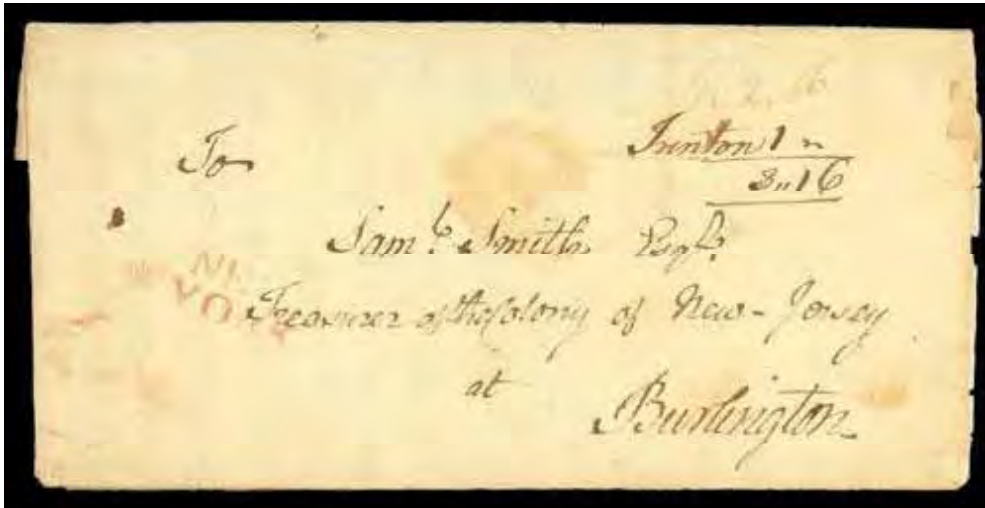 Trenton 1 "
3 " 16
To
Saml. Smith Esqr.
Treasurer of the Colony of New-Jersey
at
Burlington
YO